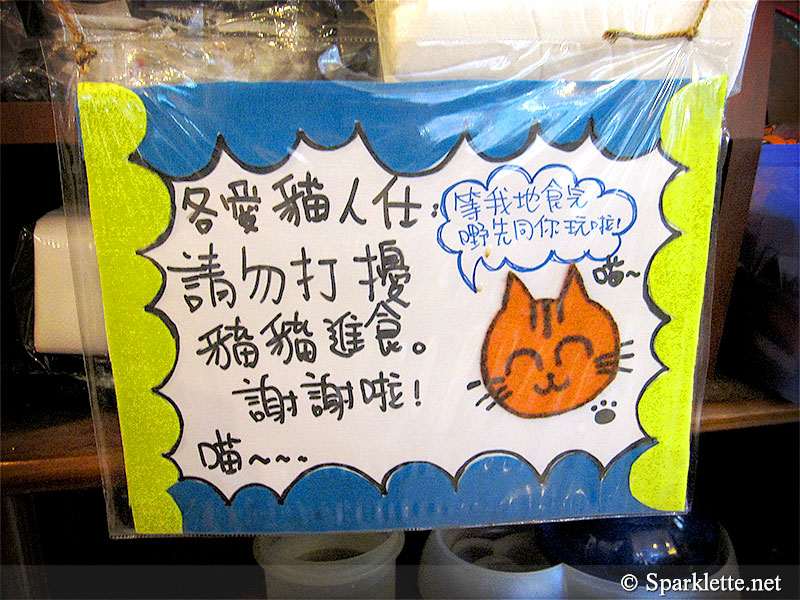 各愛貓人仕:
請勿打擾
貓貓進食。
謝謝啦!
喵~~~
等我地食完
嘢先同你玩啦!
喵~
© Sparklette.net